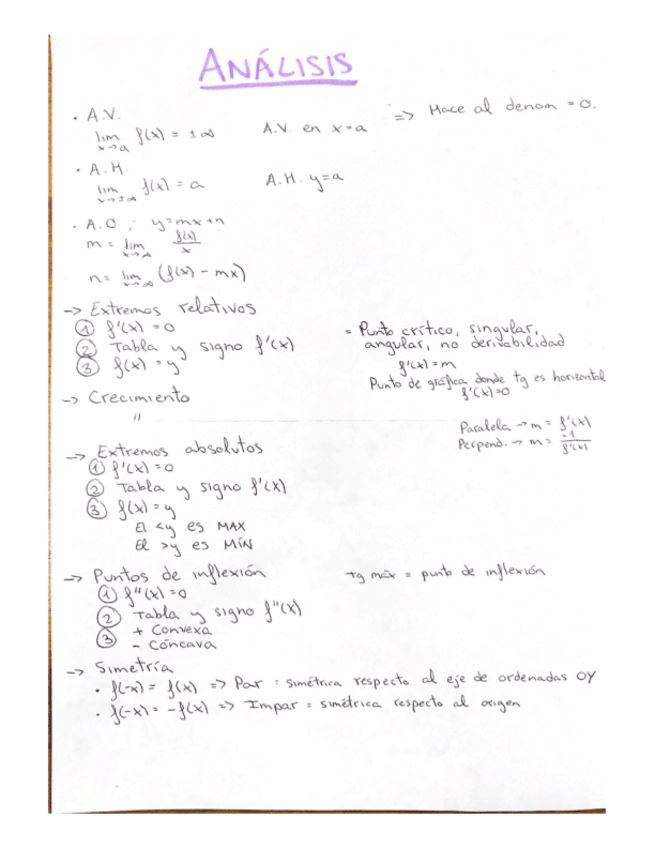 ANÁLISIS
· A.V.
lim x→a f(x) = ±∞ A.V. en x=a => Hace al denom = 0.
· A.H.
lim x→±∞ f(x) = a A.H. y=a
· A.O : y=mx+n
m = lim x→∞ f(x)/x
n = lim x→∞ (f(x) - mx)
→ Extremos relativos
① f'(x) = 0
② Tabla y signo f'(x)
③ f(x) = y
= Punto crítico, singular,
angular, no derivabilidad
f'(x) = m
Punto de gráfica donde tg es horizontal
f'(x)=0
→ Crecimiento
"
Paralela → m = f'(x)
Perpend. → m = -1/f'(x)
→ Extremos absolutos
① f'(x) = 0
② Tabla y signo f'(x)
③ f(x) = y
El <y es MAX
El >y es MÍN
→ Puntos de inflexión tg máx = punto de inflexión
① f''(x) = 0
② Tabla y signo f''(x)
③ + Convexa
- Cóncava
→ Simetría
· f(-x) = f(x) => Par = simétrica respecto al eje de ordenadas OY
· f(-x) = -f(x) => Impar = simétrica respecto al origen